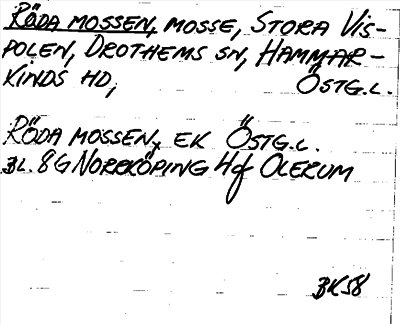 RÖDA MOSSEN, MOSSE, STORA VIS-
POLEN, DROTHEMS SN, HAMMAR-
KINDS HD, ÖSTG.L.
RÖDA MOSSEN, EK ÖSTG.L.
BL. 8G NORRKÖPING 4gf OLERUM
BK58